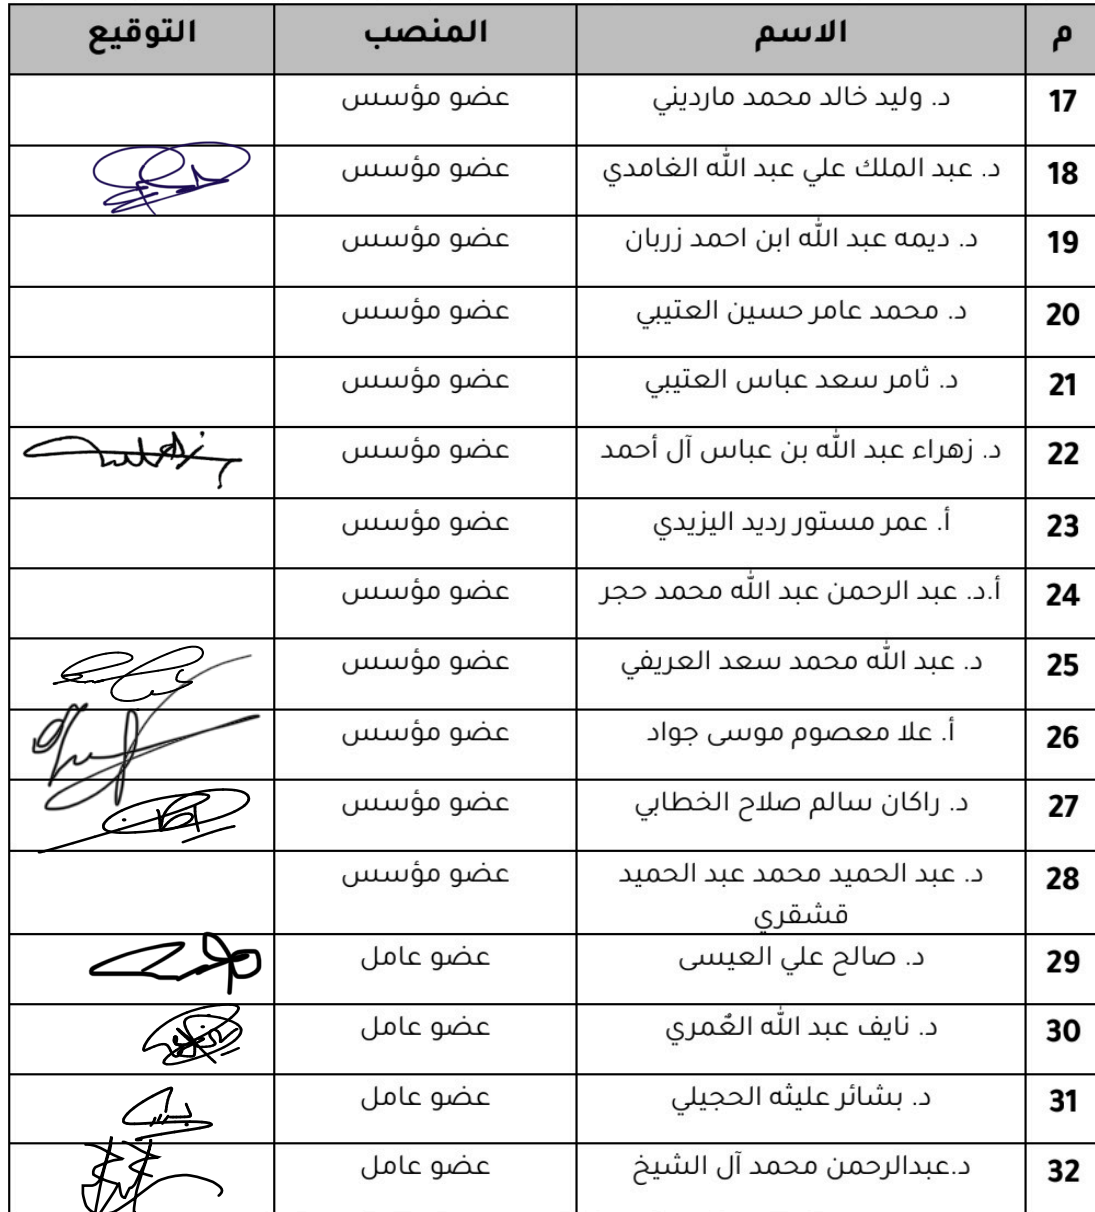 م الاسم المنصب التوقيع
17 د. وليد خالد محمد مارديني عضو مؤسس
18 د. عبد الملك علي عبد الله الغامدي عضو مؤسس
19 د. ديمه عبد الله ابن احمد زربان عضو مؤسس
20 د. محمد عامر حسين العتيبي عضو مؤسس
21 د. ثامر سعد عباس العتيبي عضو مؤسس
22 د. زهراء عبد الله بن عباس آل أحمد عضو مؤسس
23 أ. عمر مستور رديد اليزيدي عضو مؤسس
24 أ.د. عبد الرحمن عبد الله محمد حجر عضو مؤسس
25 د. عبد الله محمد سعد العريفي عضو مؤسس
26 أ. علا معصوم موسى جواد عضو مؤسس
27 د. راكان سالم صلاح الخطابي عضو مؤسس
28 د. عبد الحميد محمد عبد الحميد عضو مؤسس
قشقري
29 د. صالح علي العيسى عضو عامل
30 د. نايف عبد الله العٌمري عضو عامل
31 د. بشائر عليثه الحجيلي عضو عامل
32 د.عبدالرحمن محمد آل الشيخ عضو عامل